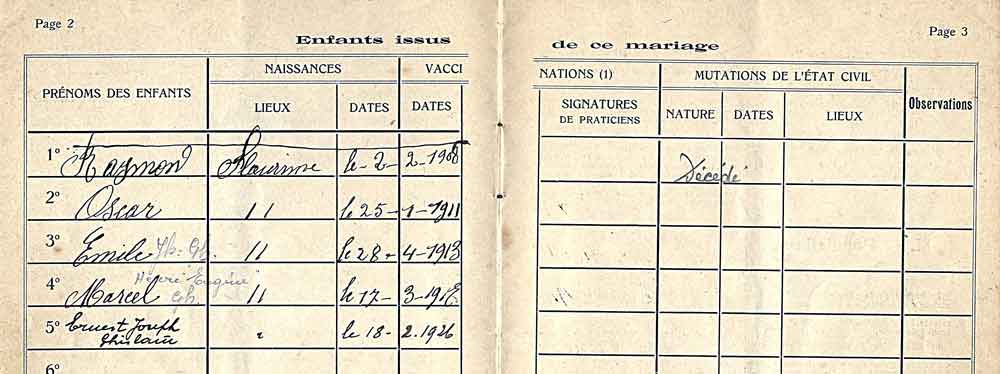 Page 2
Enfants issus
PRÉNOMS DES ENFANTS
NAISSANCES
VACCI
LIEUX
DATES
DATES
1° Raymond le - 2 - 2 - 1908
2° Oscar 11 le 25 - 1 - 1911
3° Emile Th. Gh. 11 le 28 - 4 - 1913
Eugène
4° Marcel Gh. 11 le 17 - 3 -
5° Ernest Joseph " le 18 - 2. 1926
Ghislain
6°
Page 3
de ce mariage
NATIONS (1)
MUTATIONS DE L'ÉTAT CIVIL
Observations
SIGNATURES
DE PRATICIENS
NATURE
DATES
LIEUX
Décédé